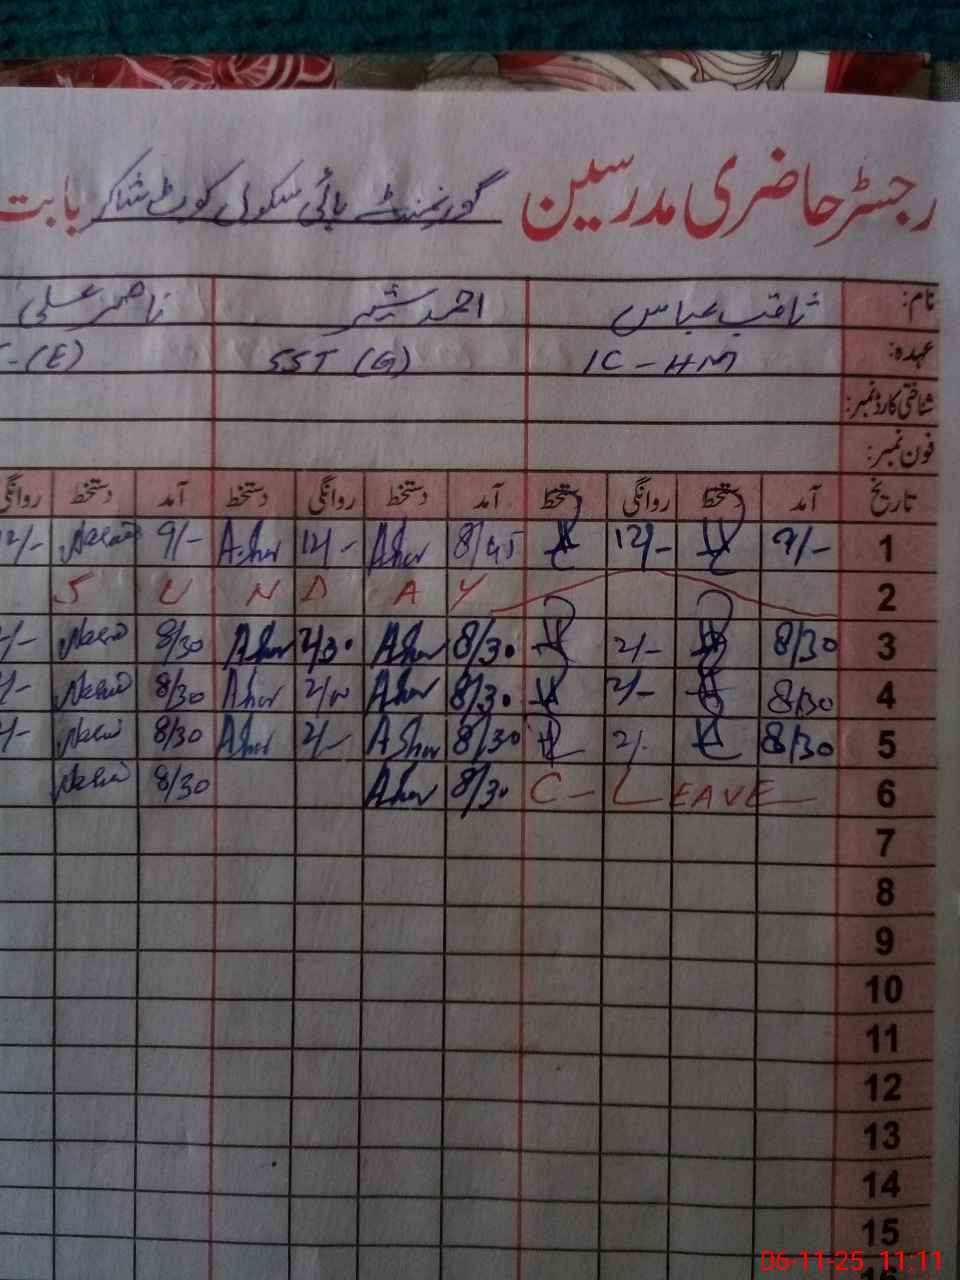 رجسٹر حاضری مدرسین گورنمنٹ ہائی سکول کوٹ شاکر بابت
نام: ثاقب عباس احمد شیر ناصر علی
عہدہ: IC-HM SST (G) (E)
شناختی کارڈ نمبر:
فون نمبر:
تاریخ آمد دستخط روانگی دستخط آمد دستخط روانگی دستخط آمد دستخط روانگی
1 9/- 12/- 8/45 Asher 12/- Asher 9/- 12/-
2 SUNDAY
3 8/30 2/- 8/30 Asher 2/30 Asher 8/30
4 8/30 2/- 8/30 Asher Asher 8/30
5 8/30 2/- 8/30 Asher 2/- Asher 8/30
6 C-LEAVE 8/30 Asher 8/30
7
8
9
10
11
12
13
14
15
16
06-11-25 11:11